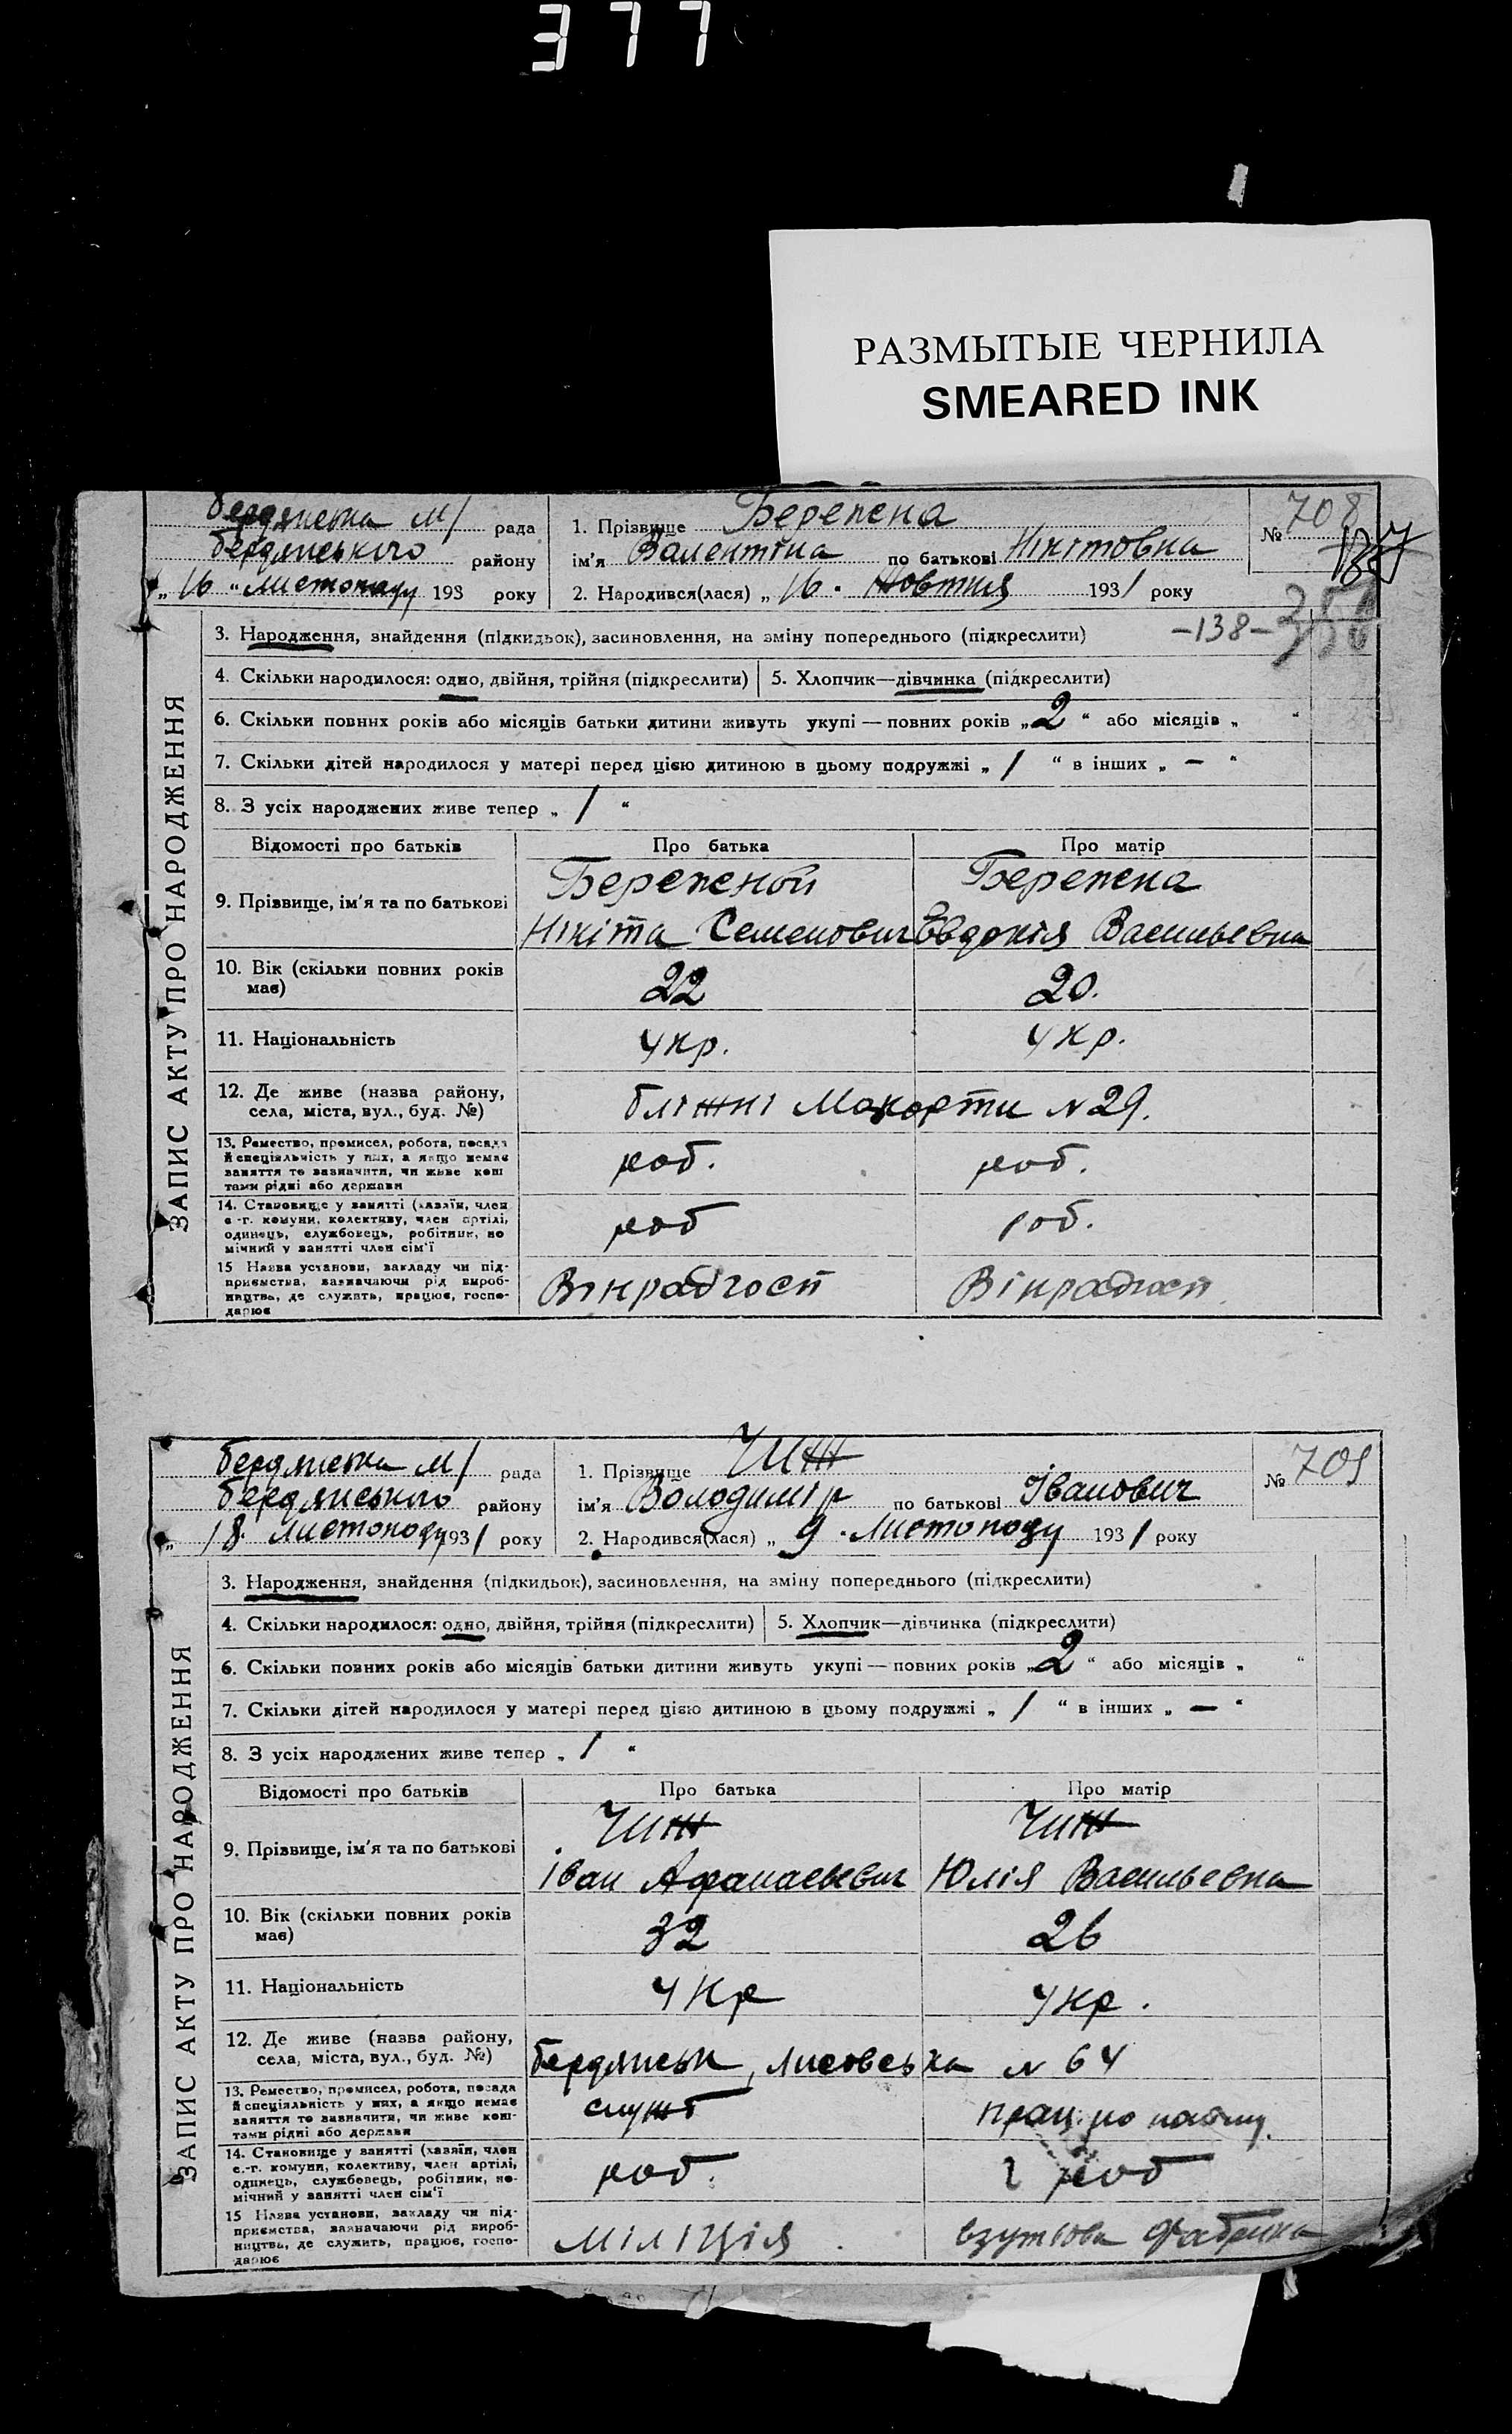 377
РАЗМЫТЫЕ ЧЕРНИЛА
SMEARED INK
Бердянська м/ рада
Бердянського району
„16“ Листопаду 193 року
1. Прізвище Бережена
ім'я Валентіна по батькові Нікітовна
2. Народився(лася) „16. Жовтня 1931 року
№ 708
-138-
ЗАПИС АКТУ ПРО НАРОДЖЕННЯ
3. Народження, знайдення (підкидьок), засиновлення, на зміну попереднього (підкреслити)
4. Скільки народилося: одно, двійня, трійня (підкреслити)
5. Хлопчик—дівчинка (підкреслити)
6. Скільки повних років або місяців батьки дитини живуть укупі — повних років „2“ або місяців „ “
7. Скільки дітей народилося у матері перед цією дитиною в цьому подружжі „1“ в інших „—“
8. З усіх народжених живе тепер „1“
Відомості про батьків Про батька Про матір
9. Прізвище, ім'я та по батькові
Береженой
Нікіта Семенович
Бережена
Евдокія Васильевна
10. Вік (скільки повних років має)
22 20.
11. Національність
укр. укр.
12. Де живе (назва району, села, міста, вул., буд. №)
бліжні Макорти N 29.
13. Ремество, промисел, робота, посада
й спеціяльність у них, а якщо немає
заняття то зазначити, чи живе кош
тами рідні або держави
роб. роб.
14. Становище у занятті (хазяїн, член
с-г. комуни, колективу, член артілі,
одинець, службовець, робітник, по
мічний у занятті член сім'ї
роб роб.
15 Назва установи, закладу чи під-
приємства, зазначаючи рід вироб-
ництва, де служить, працює, госпо-
дарює
Вінрадгосп Вінрадгосп
Бердянська м/ рада
Бердянського району
„18. Листопаду 1931 року
1. Прізвище Чиж
ім'я Володимір по батькові Іванович
2. Народився(лася) „9. Листопаду 1931 року
№ 709
ЗАПИС АКТУ ПРО НАРОДЖЕННЯ
3. Народження, знайдення (підкидьок), засиновлення, на зміну попереднього (підкреслити)
4. Скільки народилося: одно, двійня, трійня (підкреслити)
5. Хлопчик—дівчинка (підкреслити)
6. Скільки повних років або місяців батьки дитини живуть укупі — повних років „2“ або місяців „ “
7. Скільки дітей народилося у матері перед цією дитиною в цьому подружжі „1“ в інших „—“
8. З усіх народжених живе тепер „1“
Відомості про батьків Про батька Про матір
9. Прізвище, ім'я та по батькові
Чиж
Іван Афанасьевич
Чиж
Юлія Васильевна
10. Вік (скільки повних років має)
32 26
11. Національність
укр укр.
12. Де живе (назва району, села, міста, вул., буд. №)
Бердянськ, Лисовська N 64
13. Ремество, промисел, робота, посада
й спеціяльність у них, а якщо немає
заняття то зазначити, чи живе кош-
тами рідні або держави
служб прац. по найму.
14. Становище у занятті (хазяїн, член
с.-г. комуни, колективу, член артілі,
одинець, службовець, робітник, по-
мічний у занятті член сім'ї
роб. роб
15 Назва установи, закладу чи під-
приємства, зазначаючи рід вироб-
ництва, де служить, працює, госпо-
дарює
міліція. взуттова Фабрика